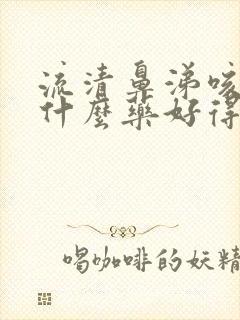 流清鼻涕咳
什麼藥好得
喝咖啡的妖精